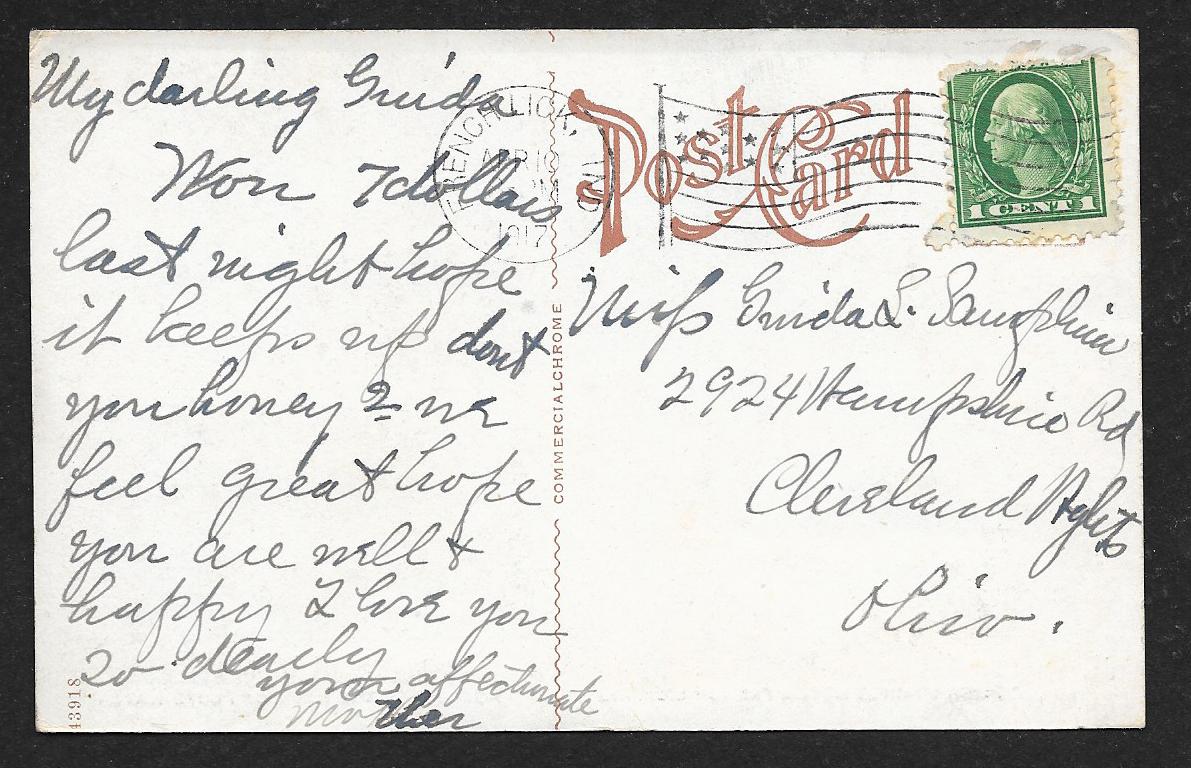 My darling Guida
Won 7 dollars
last night hope
it keeps up dont
you honey? we
feel great hope
you are well &
happy I love you
so dearly
your affectionate
mother
43918
COMMERCIALCHROME
FRENCH LICK,
IND.
1917
Post Card
1 CENT 1
Miss Guida L.
2924 Hampshire Rd
Cleveland Hghts
Ohio.